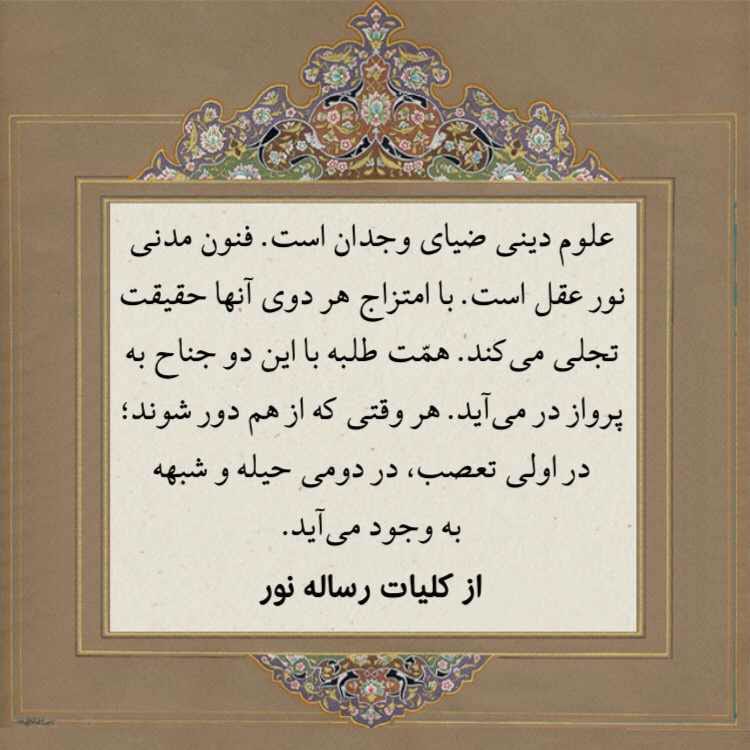 علوم دینی ضیای وجدان است. فنون مدنی
نور عقل است. با امتزاج هر دوی آنها حقیقت
تجلی می‌کند. همّت طلبه با این دو جناح به
پرواز در می‌آید. هر وقتی که از هم دور شوند؛
در اولی تعصب، در دومی حیله و شبهه
به وجود می‌آید.
از کلیات رساله نور